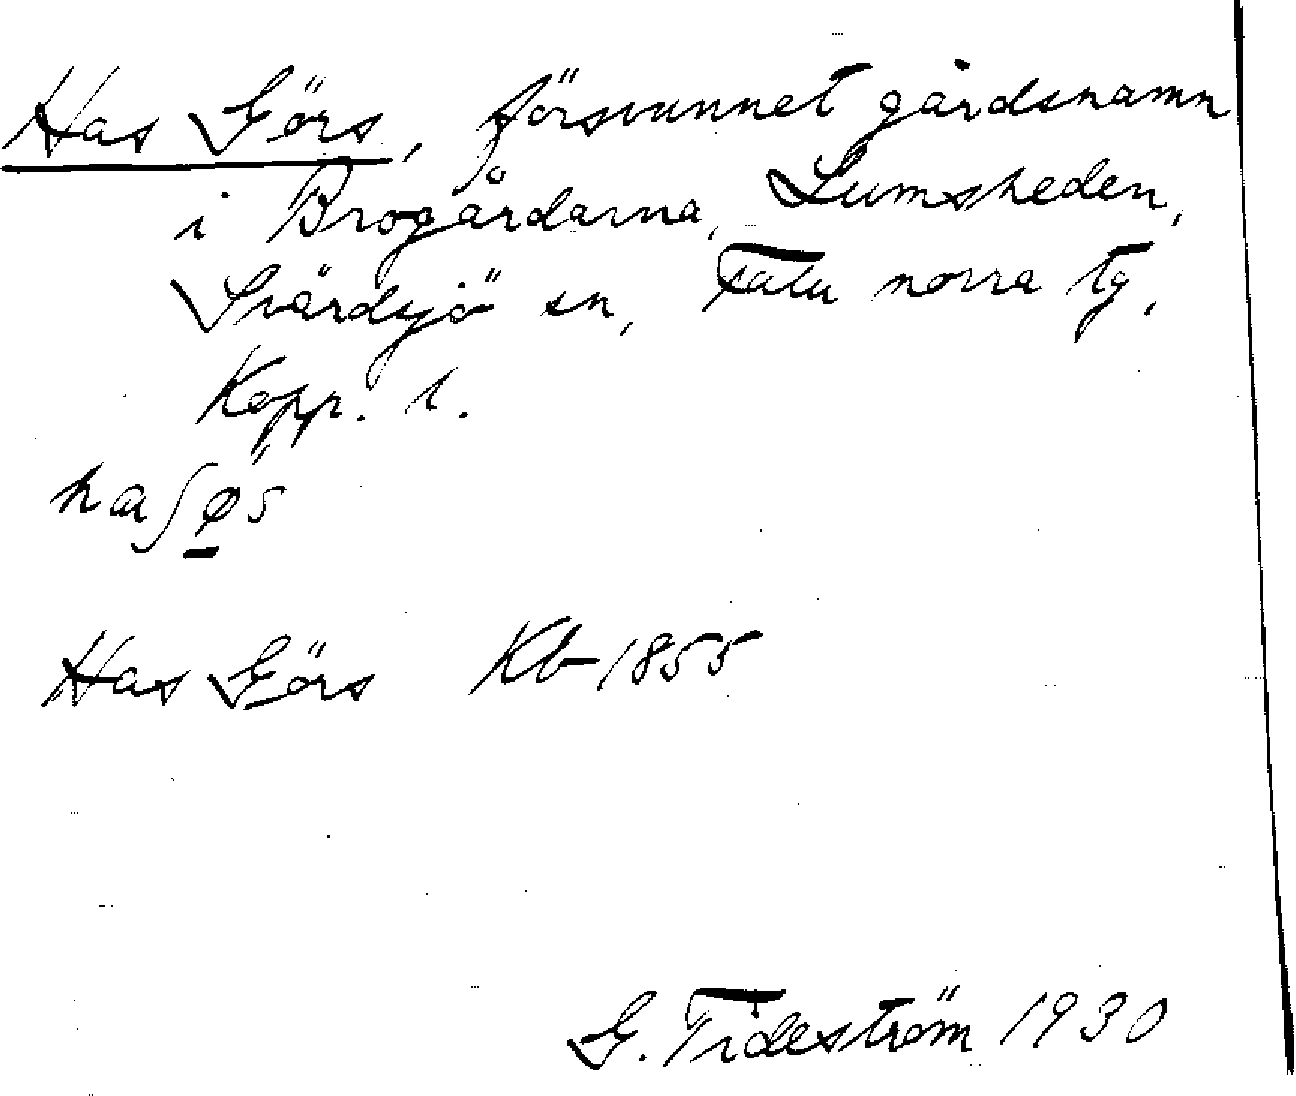 Has Görs, försvunnet gårdsnamn
i Brogårdarna, Lumsheden,
Svärdsjö sn, Falu norra tg,
Kopp. l.
Has Görs Kb 1855
G. Tideström 1930